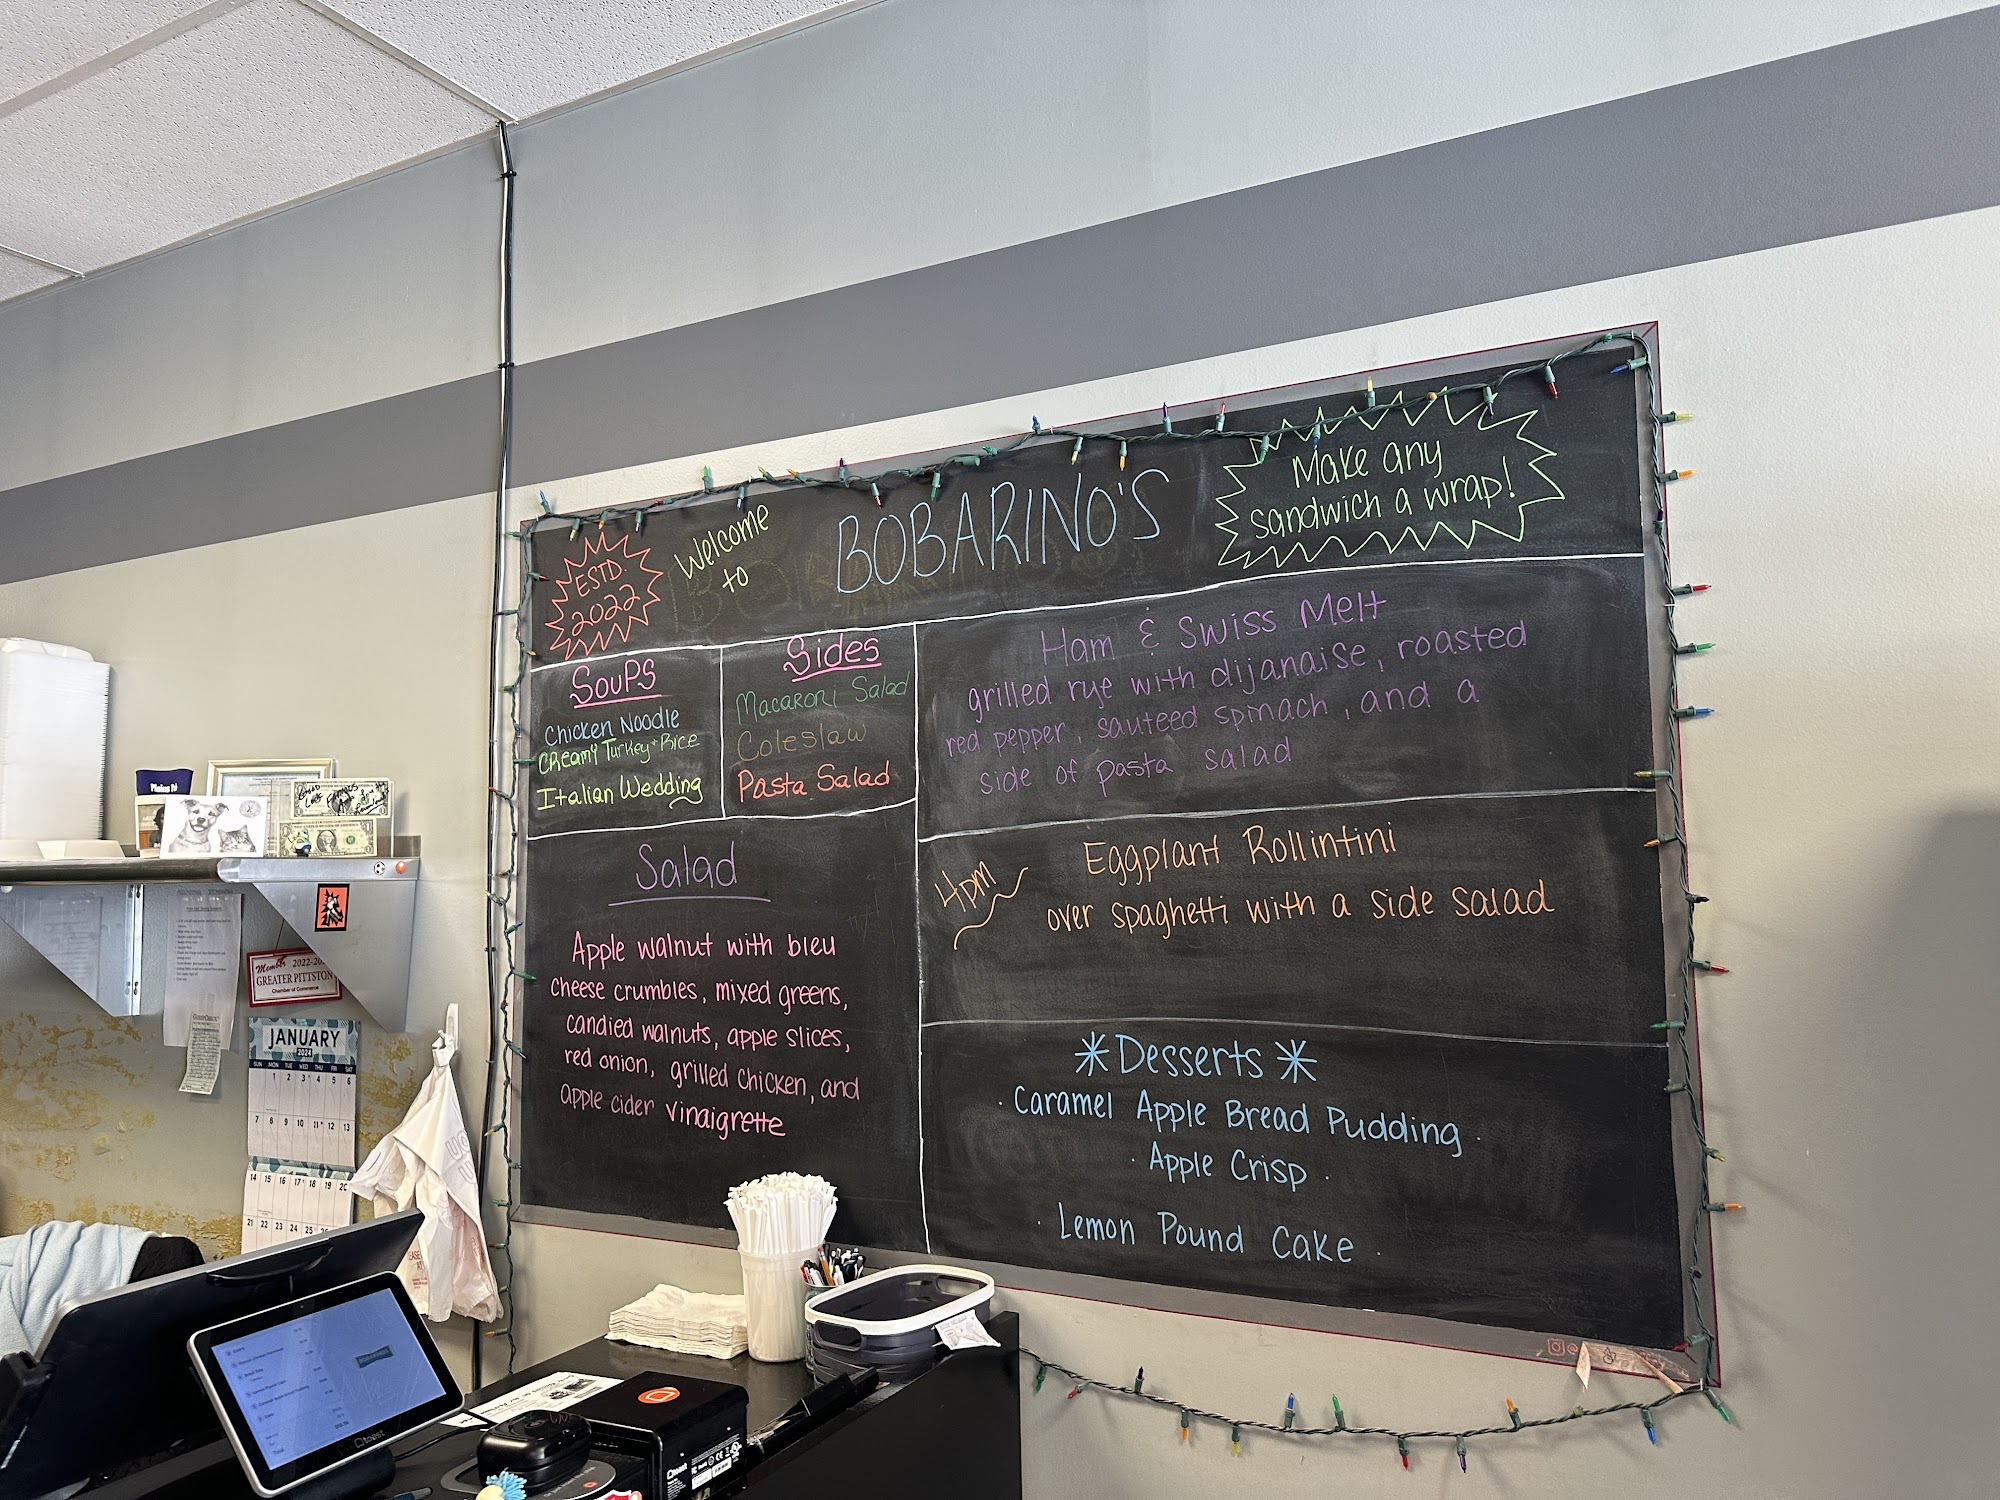 ESTD.
2022
Welcome
to
BOBARINO'S
Make any
sandwich a wrap!
Soups
Chicken Noodle
Creamy Turkey + Rice
Italian Wedding
Sides
Macaroni Salad
Coleslaw
Pasta Salad
Ham & Swiss Melt
grilled rye with dijanaise, roasted
red pepper, sauteed spinach, and a
side of pasta salad
4pm
Eggplant Rollintini
over spaghetti with a side salad
Salad
Apple walnut with bleu
cheese crumbles, mixed greens,
candied walnuts, apple slices,
red onion, grilled chicken, and
apple cider vinaigrette
*Desserts*
· Caramel Apple Bread Pudding ·
· Apple Crisp ·
· Lemon Pound Cake ·
Member 2022-20
GREATER PITTSTON
Chamber of Commerce
JANUARY
2024
SUN MON TUE WED THU FRI SAT
1 2 3 4 5 6
7 8 9 10 11 12 13
14 15 16 17 18 19 20
21 22 23 24 25
toast
toast